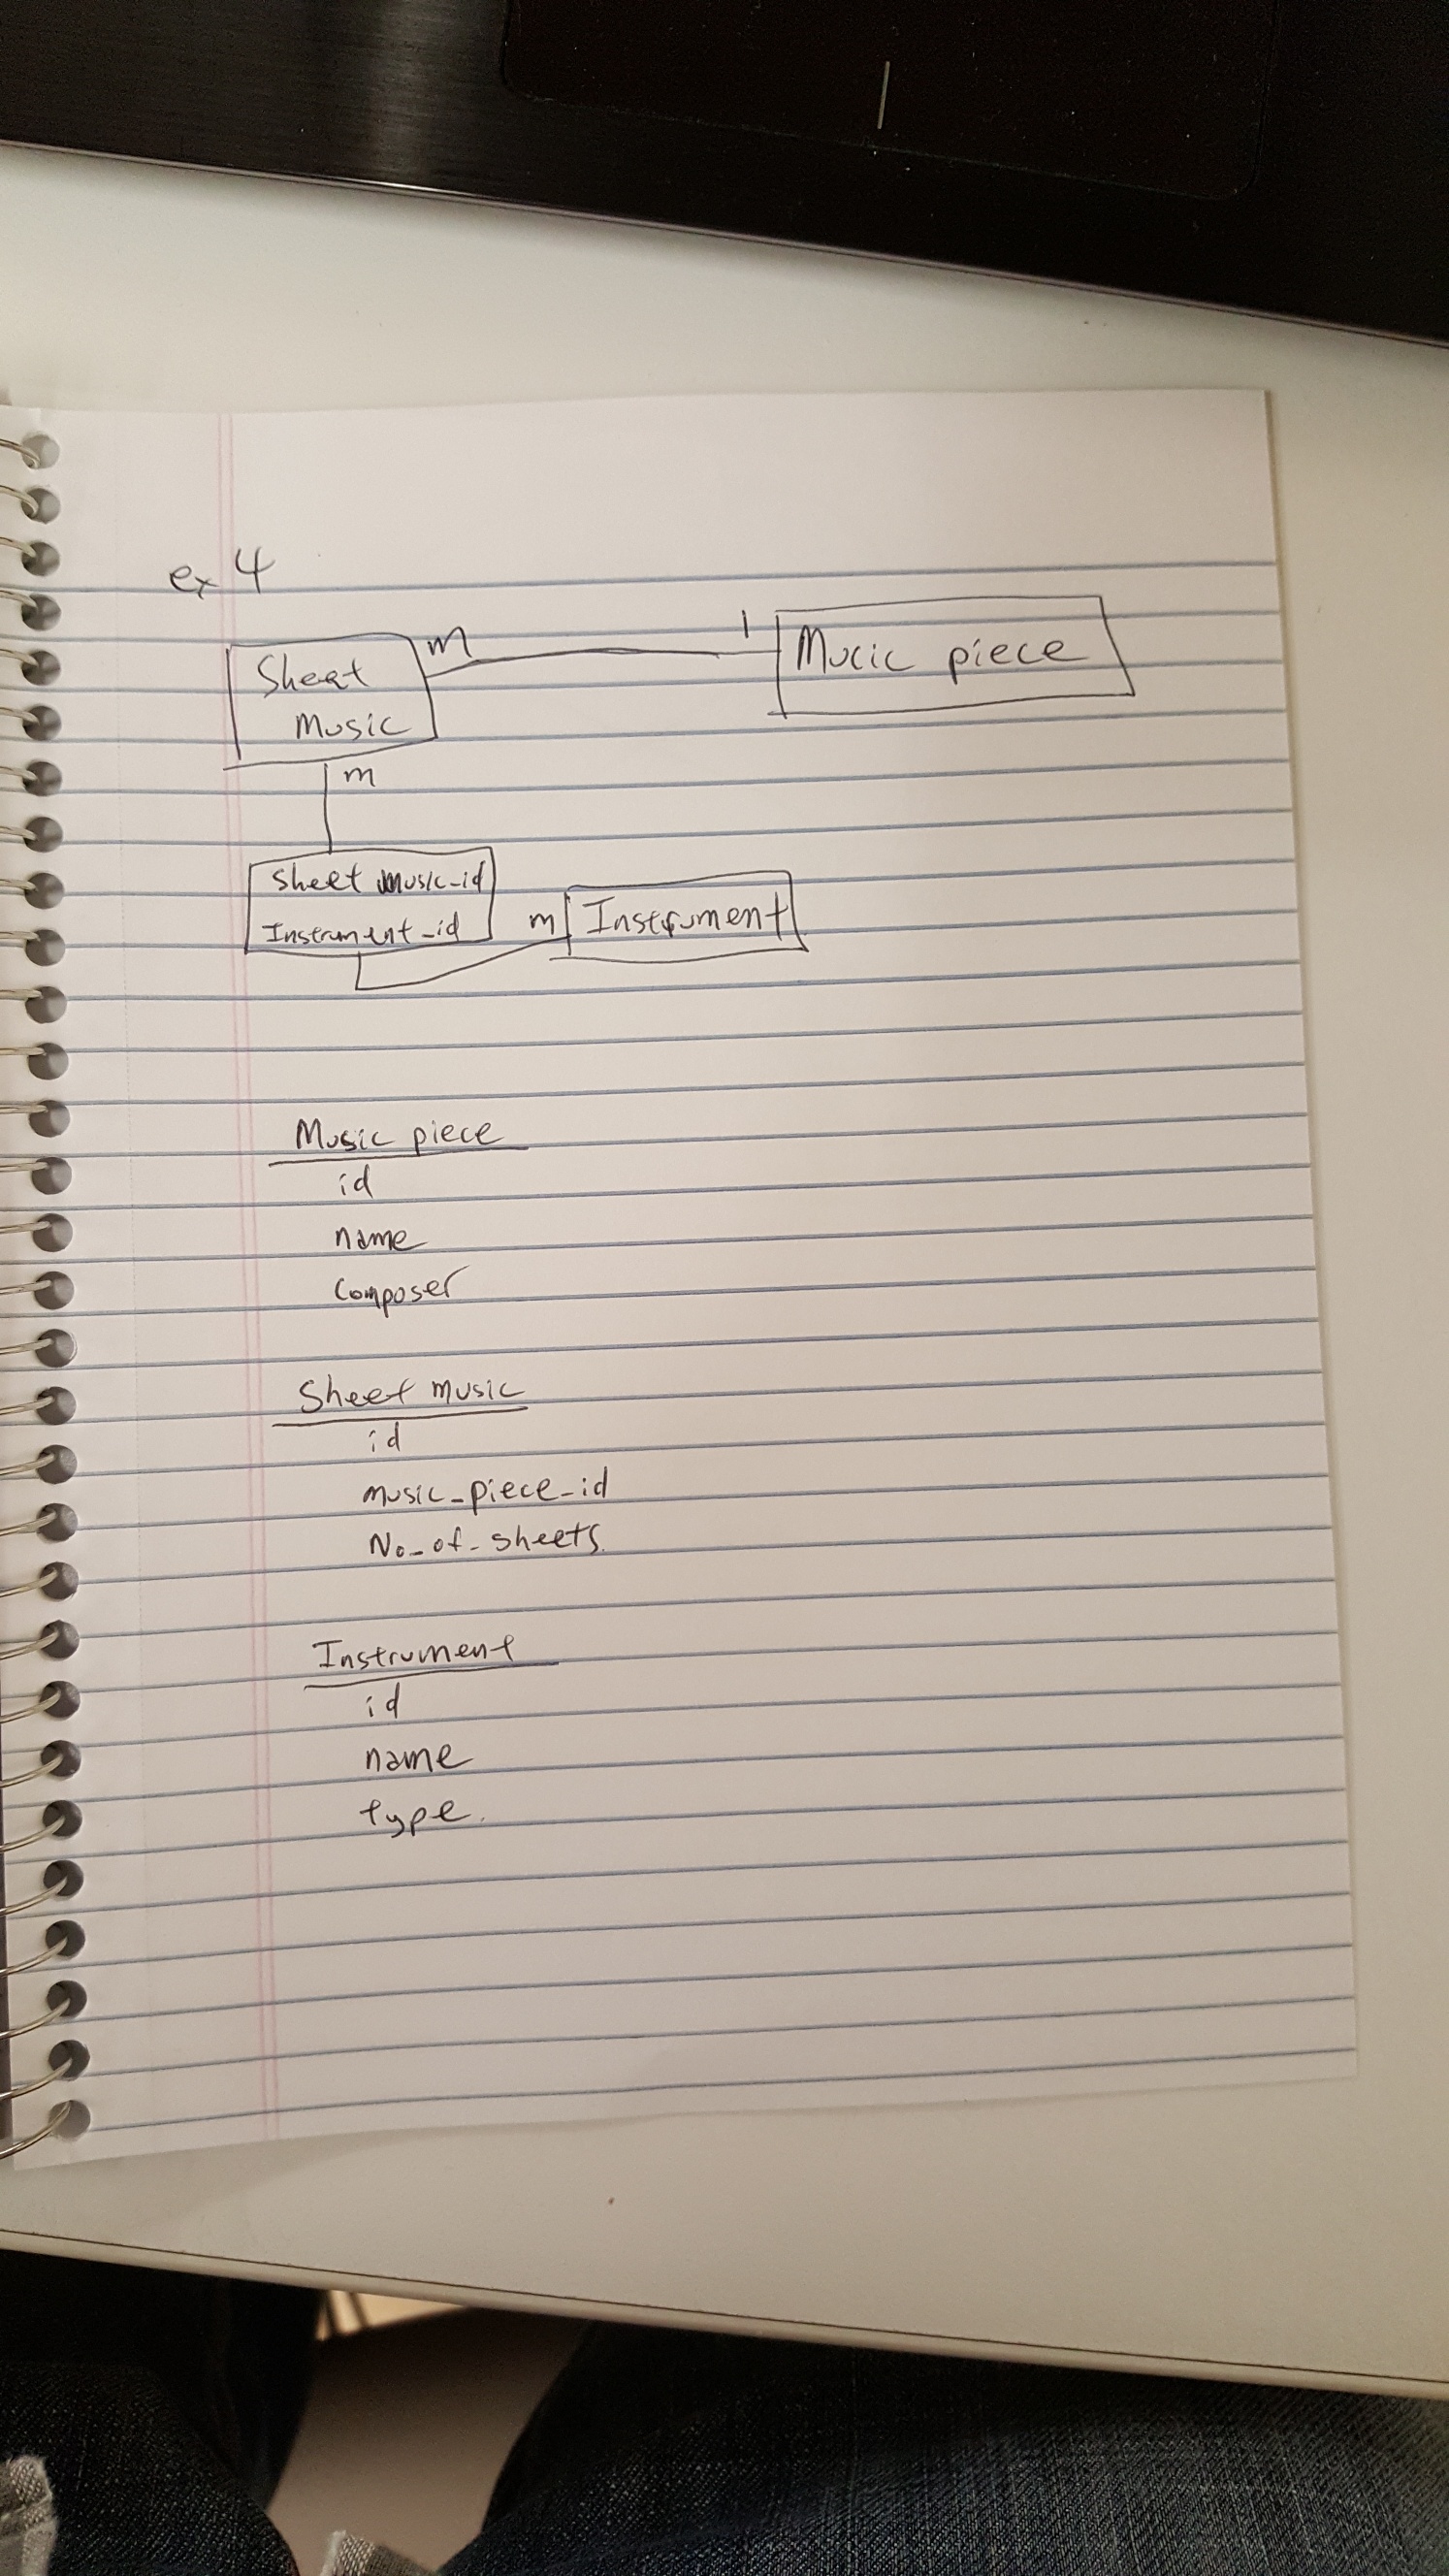 ex 4
m
1
Sheet
Music
Mucic piece
m
Sheet music_id
Instrument_id
m
Instrument
Music piece
id
name
Composer
Sheet music
id
music_piece_id
No_of_sheets.
Instrument
id
name
type.